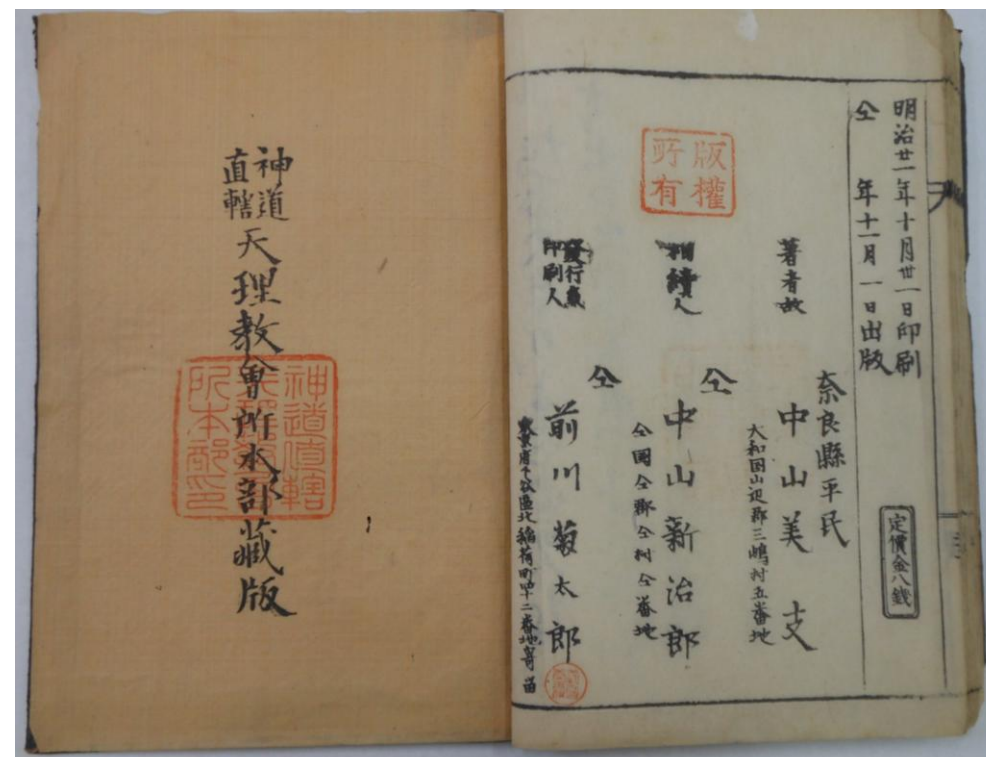 明治廿一年十月卅一日印刷
仝 年十一月一日出版
定價金八錢
版權
所有
奈良縣平民
著者故 中山美支
大和国山辺郡三嶋村五番地
仝
相續人 中山新治郎
仝国仝郡仝村仝番地
仝
發行兼
印刷人 前川菊太郎
東京府下谷區北稲荷町四十二番地寄留
神道
直轄
天理教會所本部藏版
神道直轄
天理教會
所本部印